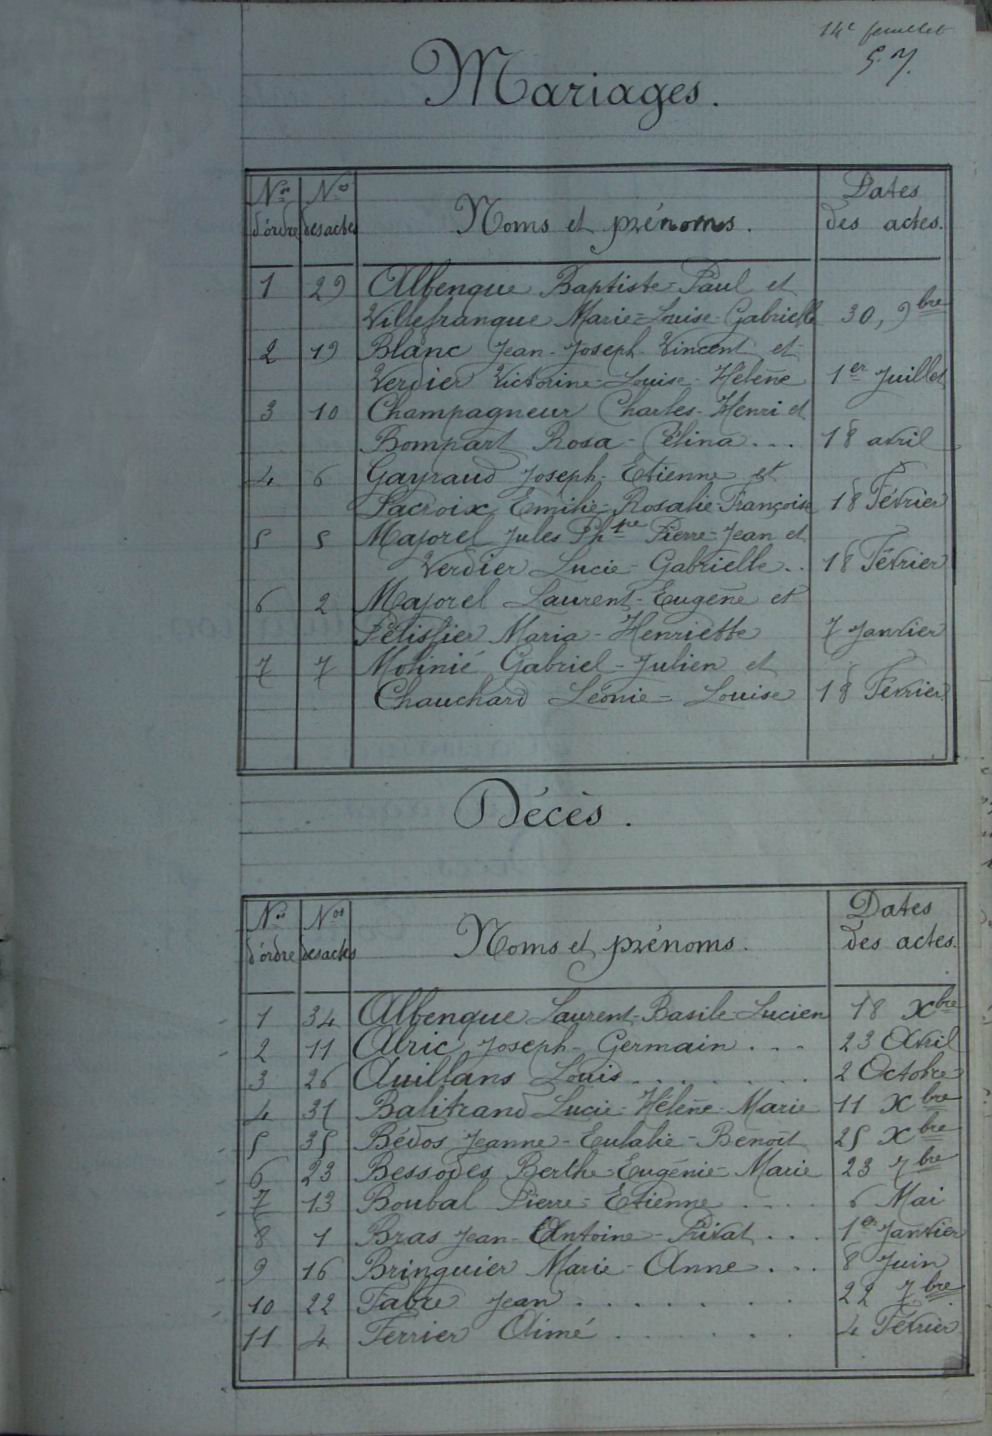 14e feuillet
Mariages.
Nos d'ordre Nos des actes Noms et prénoms. Dates des actes.
1 29 Albenque Baptiste-Paul et
Villefranque Marie=Louise-Gabrielle 30, 9bre
2 19 Blanc Jean-Joseph-Vincent et
Verdier Victorine-Louise-Hélène 1er Juillet
3 10 Champagneur Charles-Henri et
Bompart Rosa-Célina... 18 avril
4 6 Gayraud Joseph-Etienne et
Lacroix Emilie-Rosalie-Françoise 18 Février
5 5 Majorel Jules Ph-pe Pierre-Jean et
Verdier Lucie-Gabrielle.. 18 Février
6 2 Majorel Laurent-Eugène et
Pélissier Maria-Henriette 7 Janvier
7 7 Molinié Gabriel-Julien et
Chauchard Léonie=Louise 18 Février
Décès.
Nos d'ordre Nos des actes Noms et prénoms. Dates des actes.
1 34 Albenque Laurent-Basile-Lucien 18 Xbre
2 11 Alric Joseph-Germain... 23 Avril
3 26 Auillans Louis........ 2 Octobre
4 31 Balitrand Lucie-Hélène-Marie 11 Xbre
5 35 Bédos Jeanne-Eulalie-Benoît 25 Xbre
6 23 Bessodes Berthe-Eugénie-Marie 23 7bre
7 13 Boubal Pierre-Etienne.... 6 Mai
8 1 Bras Jean-Antoine-Privat... 1er Janvier
9 16 Bringuier Marie-Anne... 8 Juin
10 22 Fabre Jean........ 22 7bre
11 4 Ferrier Aimé...... 4 Février